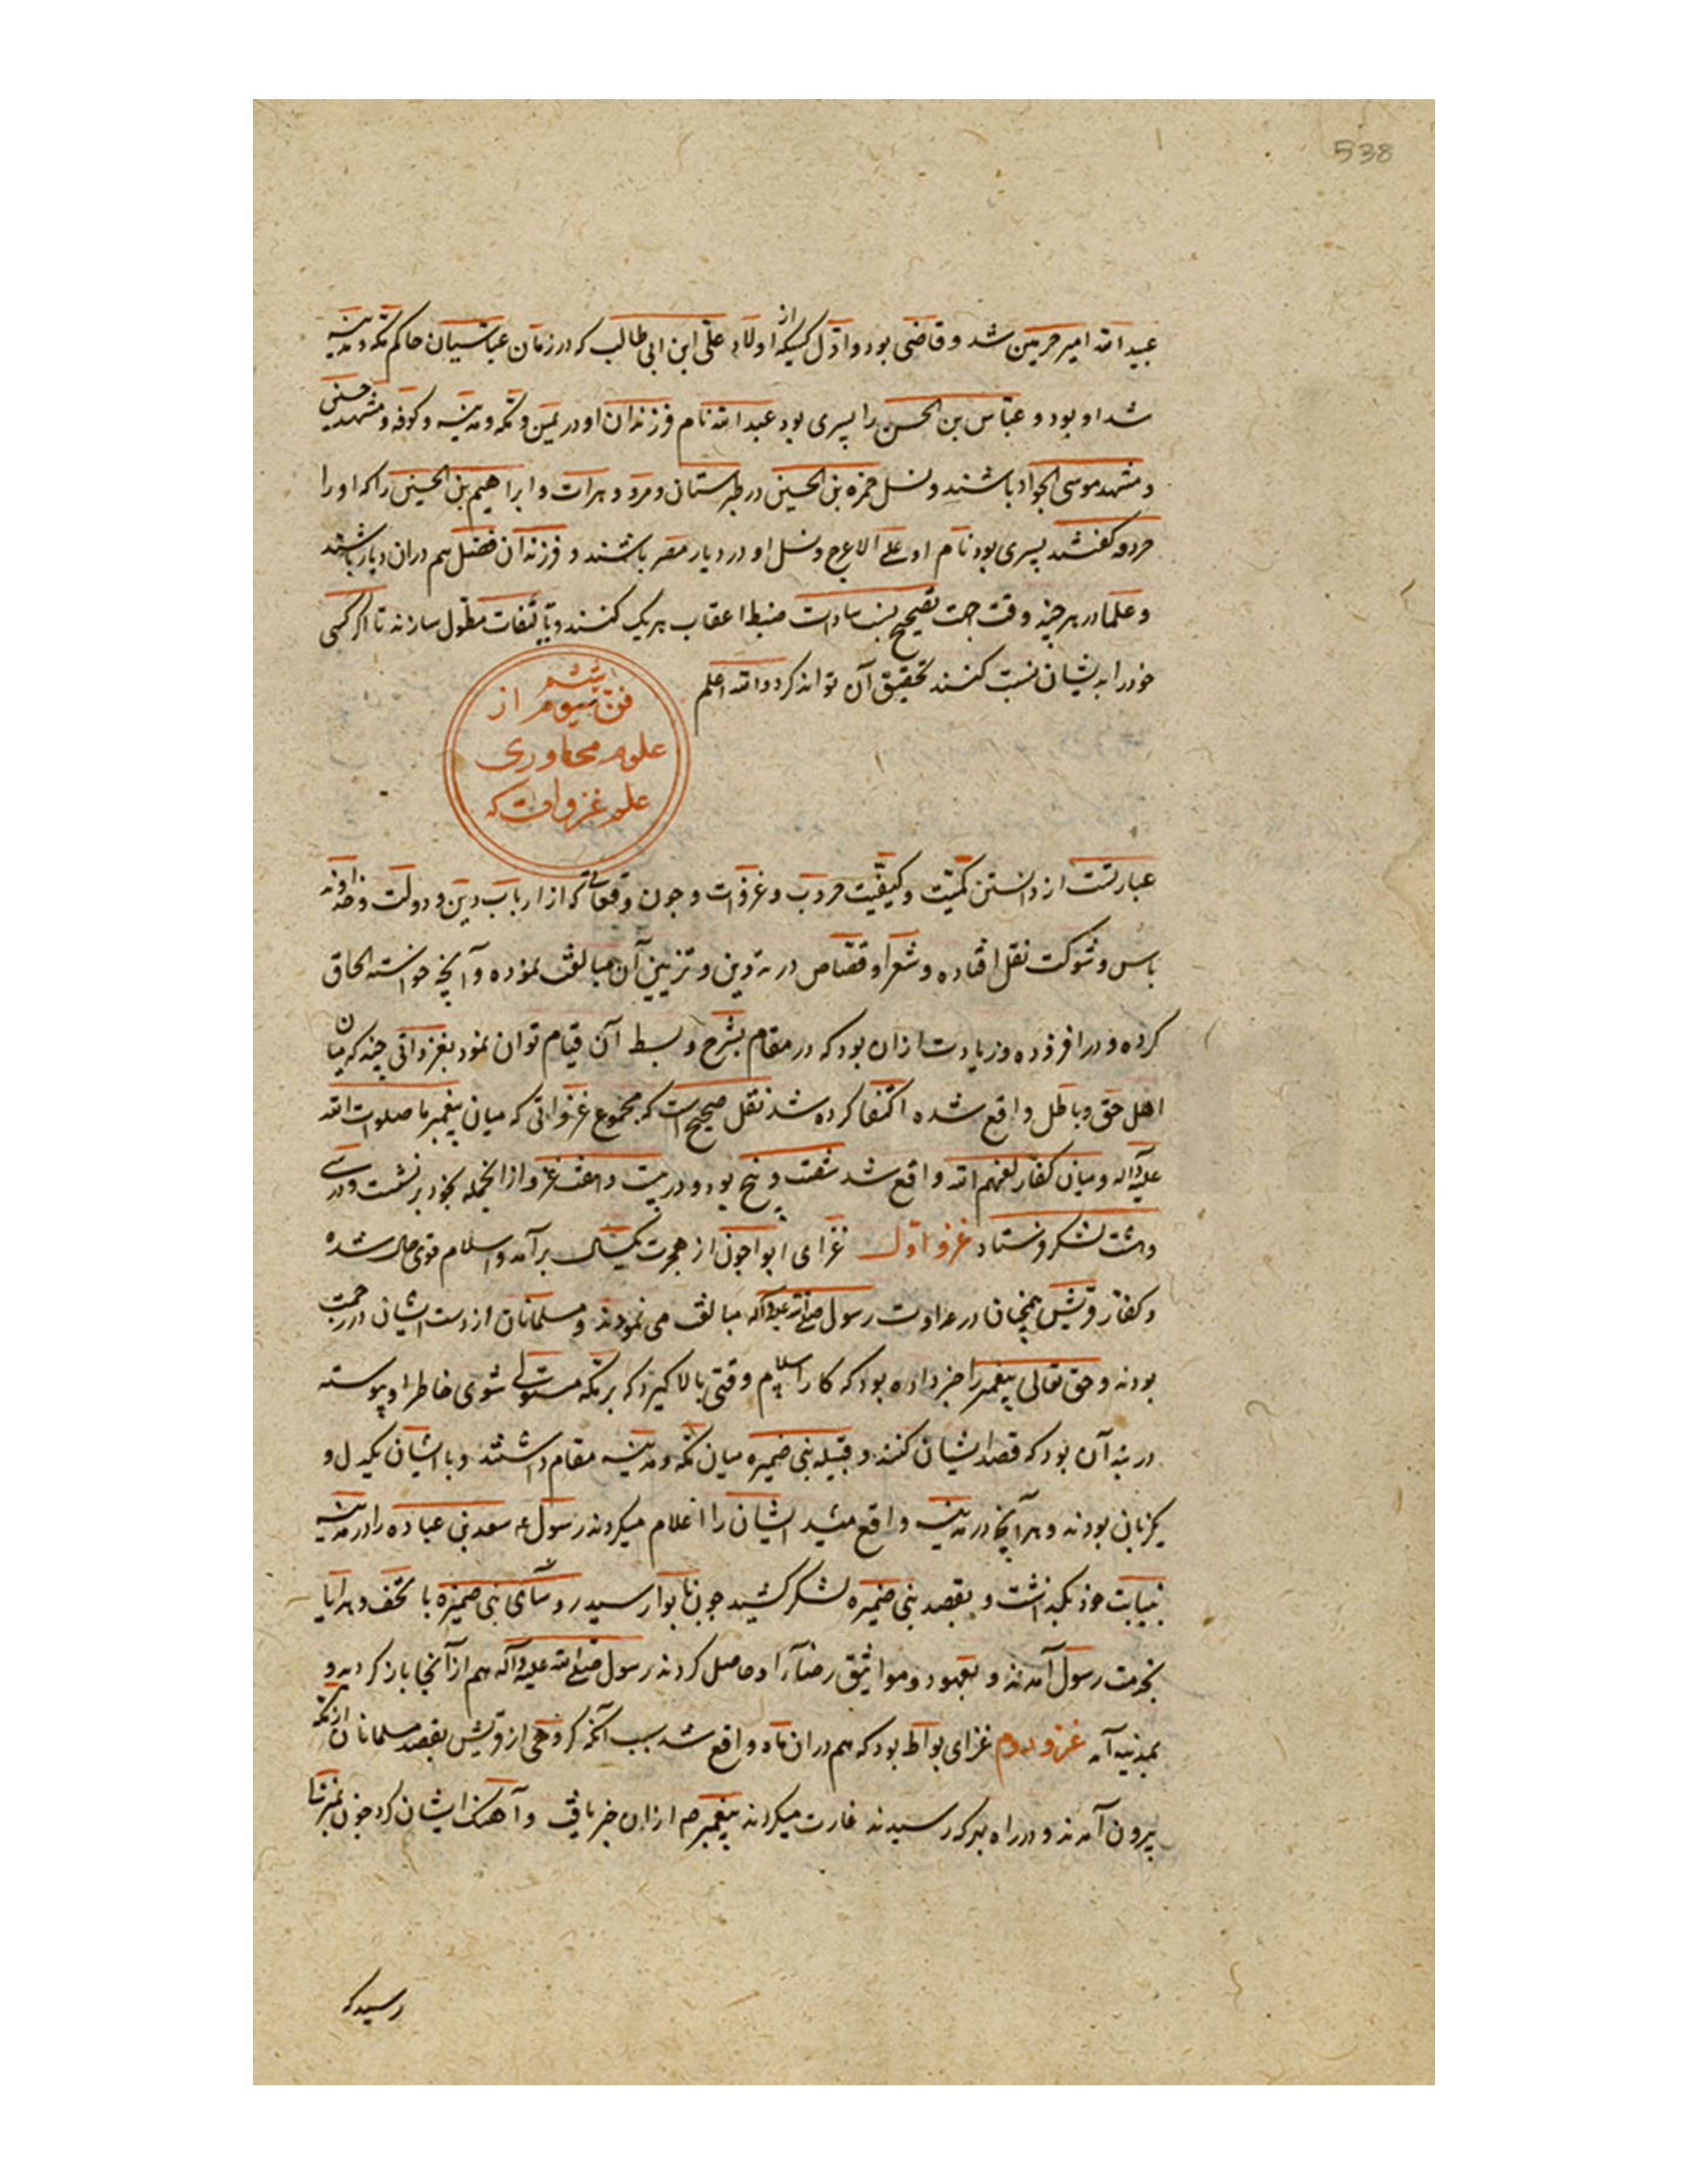 538
عبید الله امیر حرمین شد و قاضی بود و اول کسیکه از اولاد علی ابن ابی طالب که در زمان عباسیان حاکم مکه و مدینه
شد او بود و عباس بن الحسن را پسری بود عبد الله نام فرزندان او در یمن و مکه و مدینه و کوفه و مشهد حسینی
و مشهد موسی الجواد باشند و نسل حمزه بن الحسین در طبرستان و مرو و هرات و ابراهیم بن الحسین را که او را
حردقه گفتند پسری بود نام او علی الاعرج و نسل او در دیار مصر باشند و فرزندان فضل هم در ان دیار باشند
و علما در هر چند وقت جهت تصحیح نسب سادات ضبط اعقاب هر یک کنند و تالیفات مطول سازند تا اگر کسی
خود را بدیشان نسبت کنند تحقیق آن تواند کرد و الله اعلم
فن سیوم از
علوم محاوری
علم غزوات که
عبارتست از دانستن کمیت و کیفیت حروب و غزوات و چون وقعاتی که از ارباب دین و دولت و خداوند
باس و شوکت نقل افتاده و شعرا و قصاص در تدوین و تزیین آن مبالغت نموده و آنچه خواسته الحاق
کرده و در افزوده و زیادت از ان بود که در مقام شرح و بسط آن قیام توان نمود بغزواتی چند که میان
اهل حق و باطل واقع شده اکتفا کرده شد نقل صحیح است که مجموع غزواتی که میان پیغمبر ما صلوات الله
علیه و آله و میان کفار لعنهم الله واقع شد شصت و پنج بود و در بیست و هفت غزو از انجمله بخود برنشست و در سی
و هشت لشکر فرستاد غزو اول غزای ابوا چون از هجرت یکسال برآمد و اسلام قوی حال شده
و کفار قریش همچنان در عداوت رسول صلی الله علیه و آله مبالغت می نمودند و مسلمانان از دست ایشان در زحمت
بودند و حق تعالی پیغمبر را خبر داده بود که کار اسلام وقتی بالا گیرد که بر مکه مستولی شوی خاطر او پیوسته
در بند آن بود که قصد ایشان کنند و قبیله بنی ضمیره میان مکه و مدینه مقام داشتند و با ایشان یکدل و
یکزبان بودند و هر آنچا در مدینه واقع میشد ایشان را اعلام میکردند رسول ع سعد بن عباده را در مدینه
بنیابت خود بگذاشت و بقصد بنی ضمیره لشکر کشید چون بابوا رسید روسای بنی ضمیره با تحف و هدایا
بخدمت رسول آمدند و بعهود و مواثیق رضاء او حاصل کردند رسول صلی الله علیه و آله هم از آنجا باز گردید و
بمدینه آمد غزو دوم غزای بواط بود که هم در ان ماه واقع شد بسبب آنکه گروهی از قریش بقصد مسلمانان از مکه
بیرون آمدند و در راه بهر که رسیدند غارت میکردند پیغمبر هم از ان خبر یافت و آهنک ایشان کرد چون
رسید که